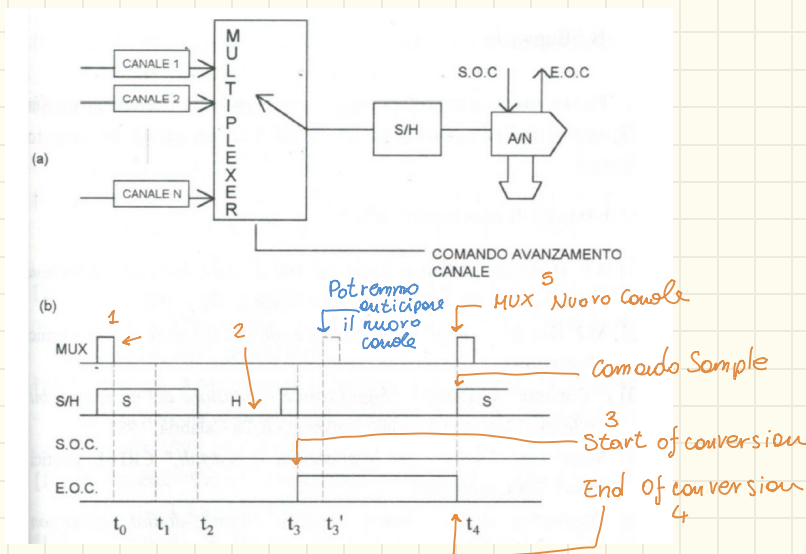 CANALE 1
CANALE 2
CANALE N
MULTPLEXER
S/H
S.O.C
E.O.C
A/N
(a)
COMANDO AVANZAMENTO
CANALE
(b)
Potremmo
anticipare
il nuovo
canale
5
MUX Nuovo Canale
1
2
MUX
Comando Sample
S/H
S
H
S
3
Start of conversion
S.O.C.
End Of conversion
4
E.O.C.
t0
t1
t2
t3
t3'
t4